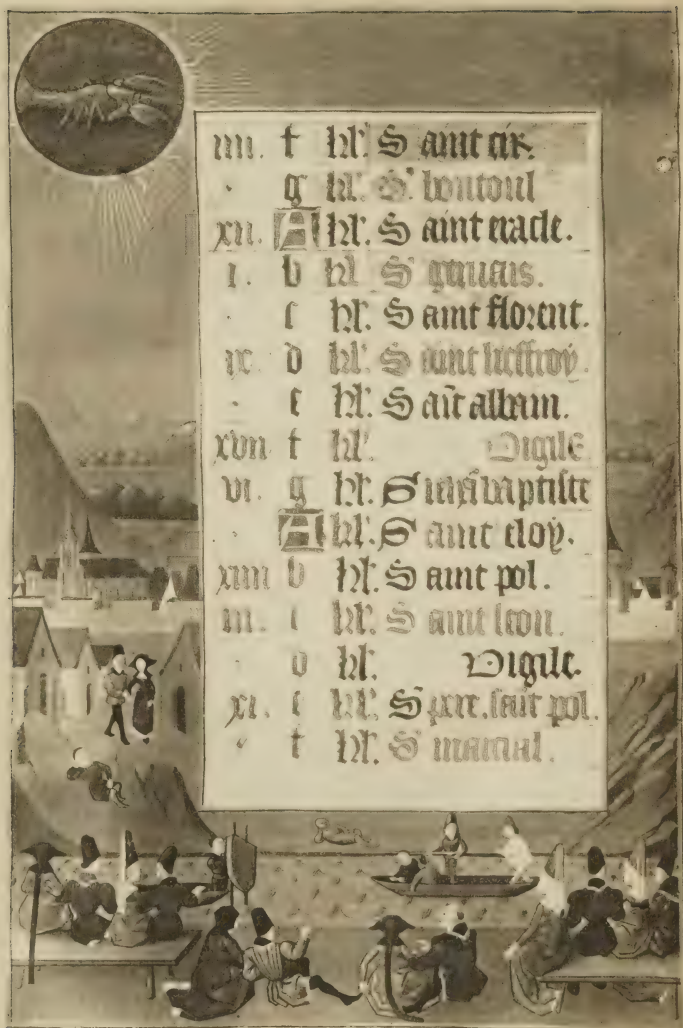 iiii. f kl'. Saint cir.
. g kl'. S' boutoul
xii. A kl'. Saint eracle.
i. b kl' S' geruais.
. c kl'. Saint florent.
ix. d kl'. Saint lieffroy.
. e kl'. Sait albain.
xvii f kl'. Vigile
vi. g kl'. S iehā baptiste
. A kl'. Saint eloy.
xiiii b kl'. Saint pol.
iii. c kl'. Saint leon.
. d kl'. Vigile.
xi. e kl'. S pere. sait pol.
. f kl'. S' marcial.